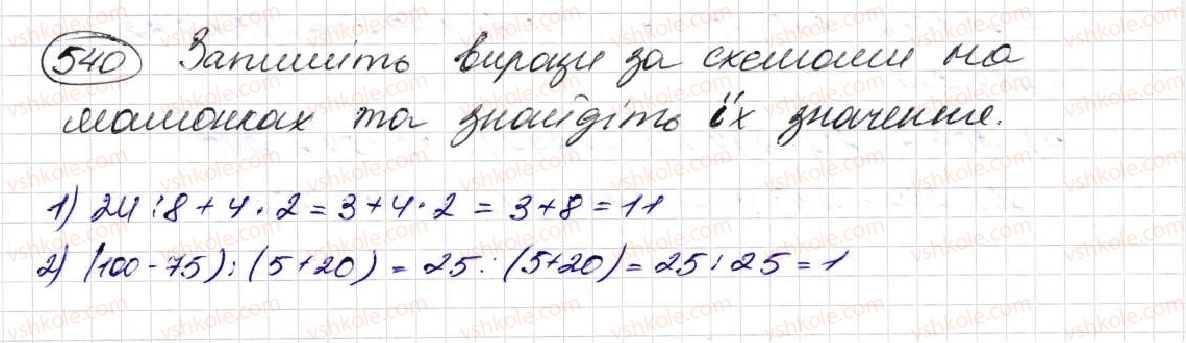 540 Запишіть вирази за схемами на
малюнках та знайдіть їх значення.
1) 24 : 8 + 4 · 2 = 3 + 4 · 2 = 3 + 8 = 11
2) (100 - 75) : (5 + 20) = 25 : (5 + 20) = 25 : 25 = 1
vshkole.com